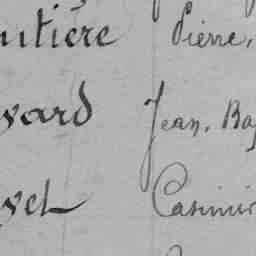 uitière Pierre,
vard Jean, Bap
vel Casimir